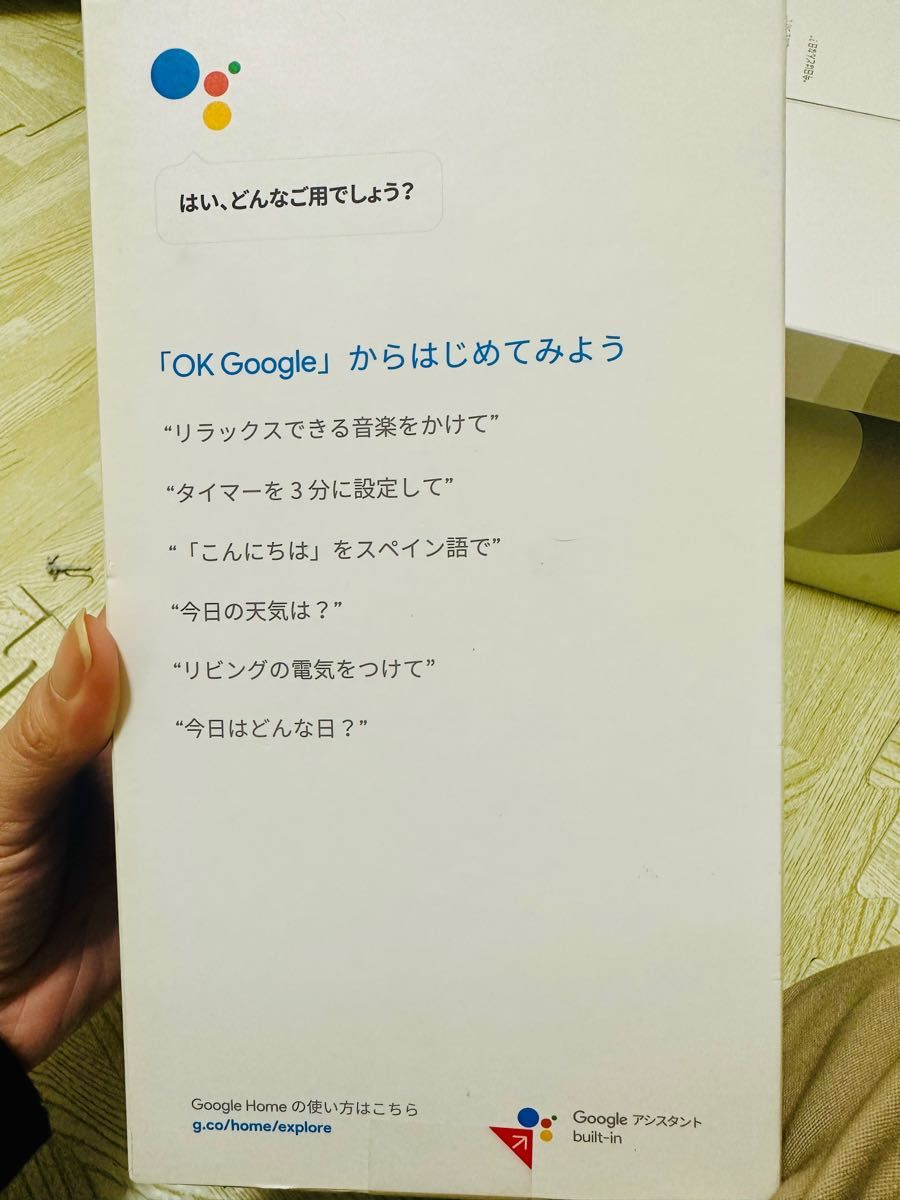 はい、どんなご用でしょう?
「OK Google」からはじめてみよう
“リラックスできる音楽をかけて”
“タイマーを3分に設定して”
“「こんにちは」をスペイン語で”
“今日の天気は？”
“リビングの電気をつけて”
“今日はどんな日？”
Google Home の使い方はこちら
g.co/home/explore
Google アシスタント
built-in